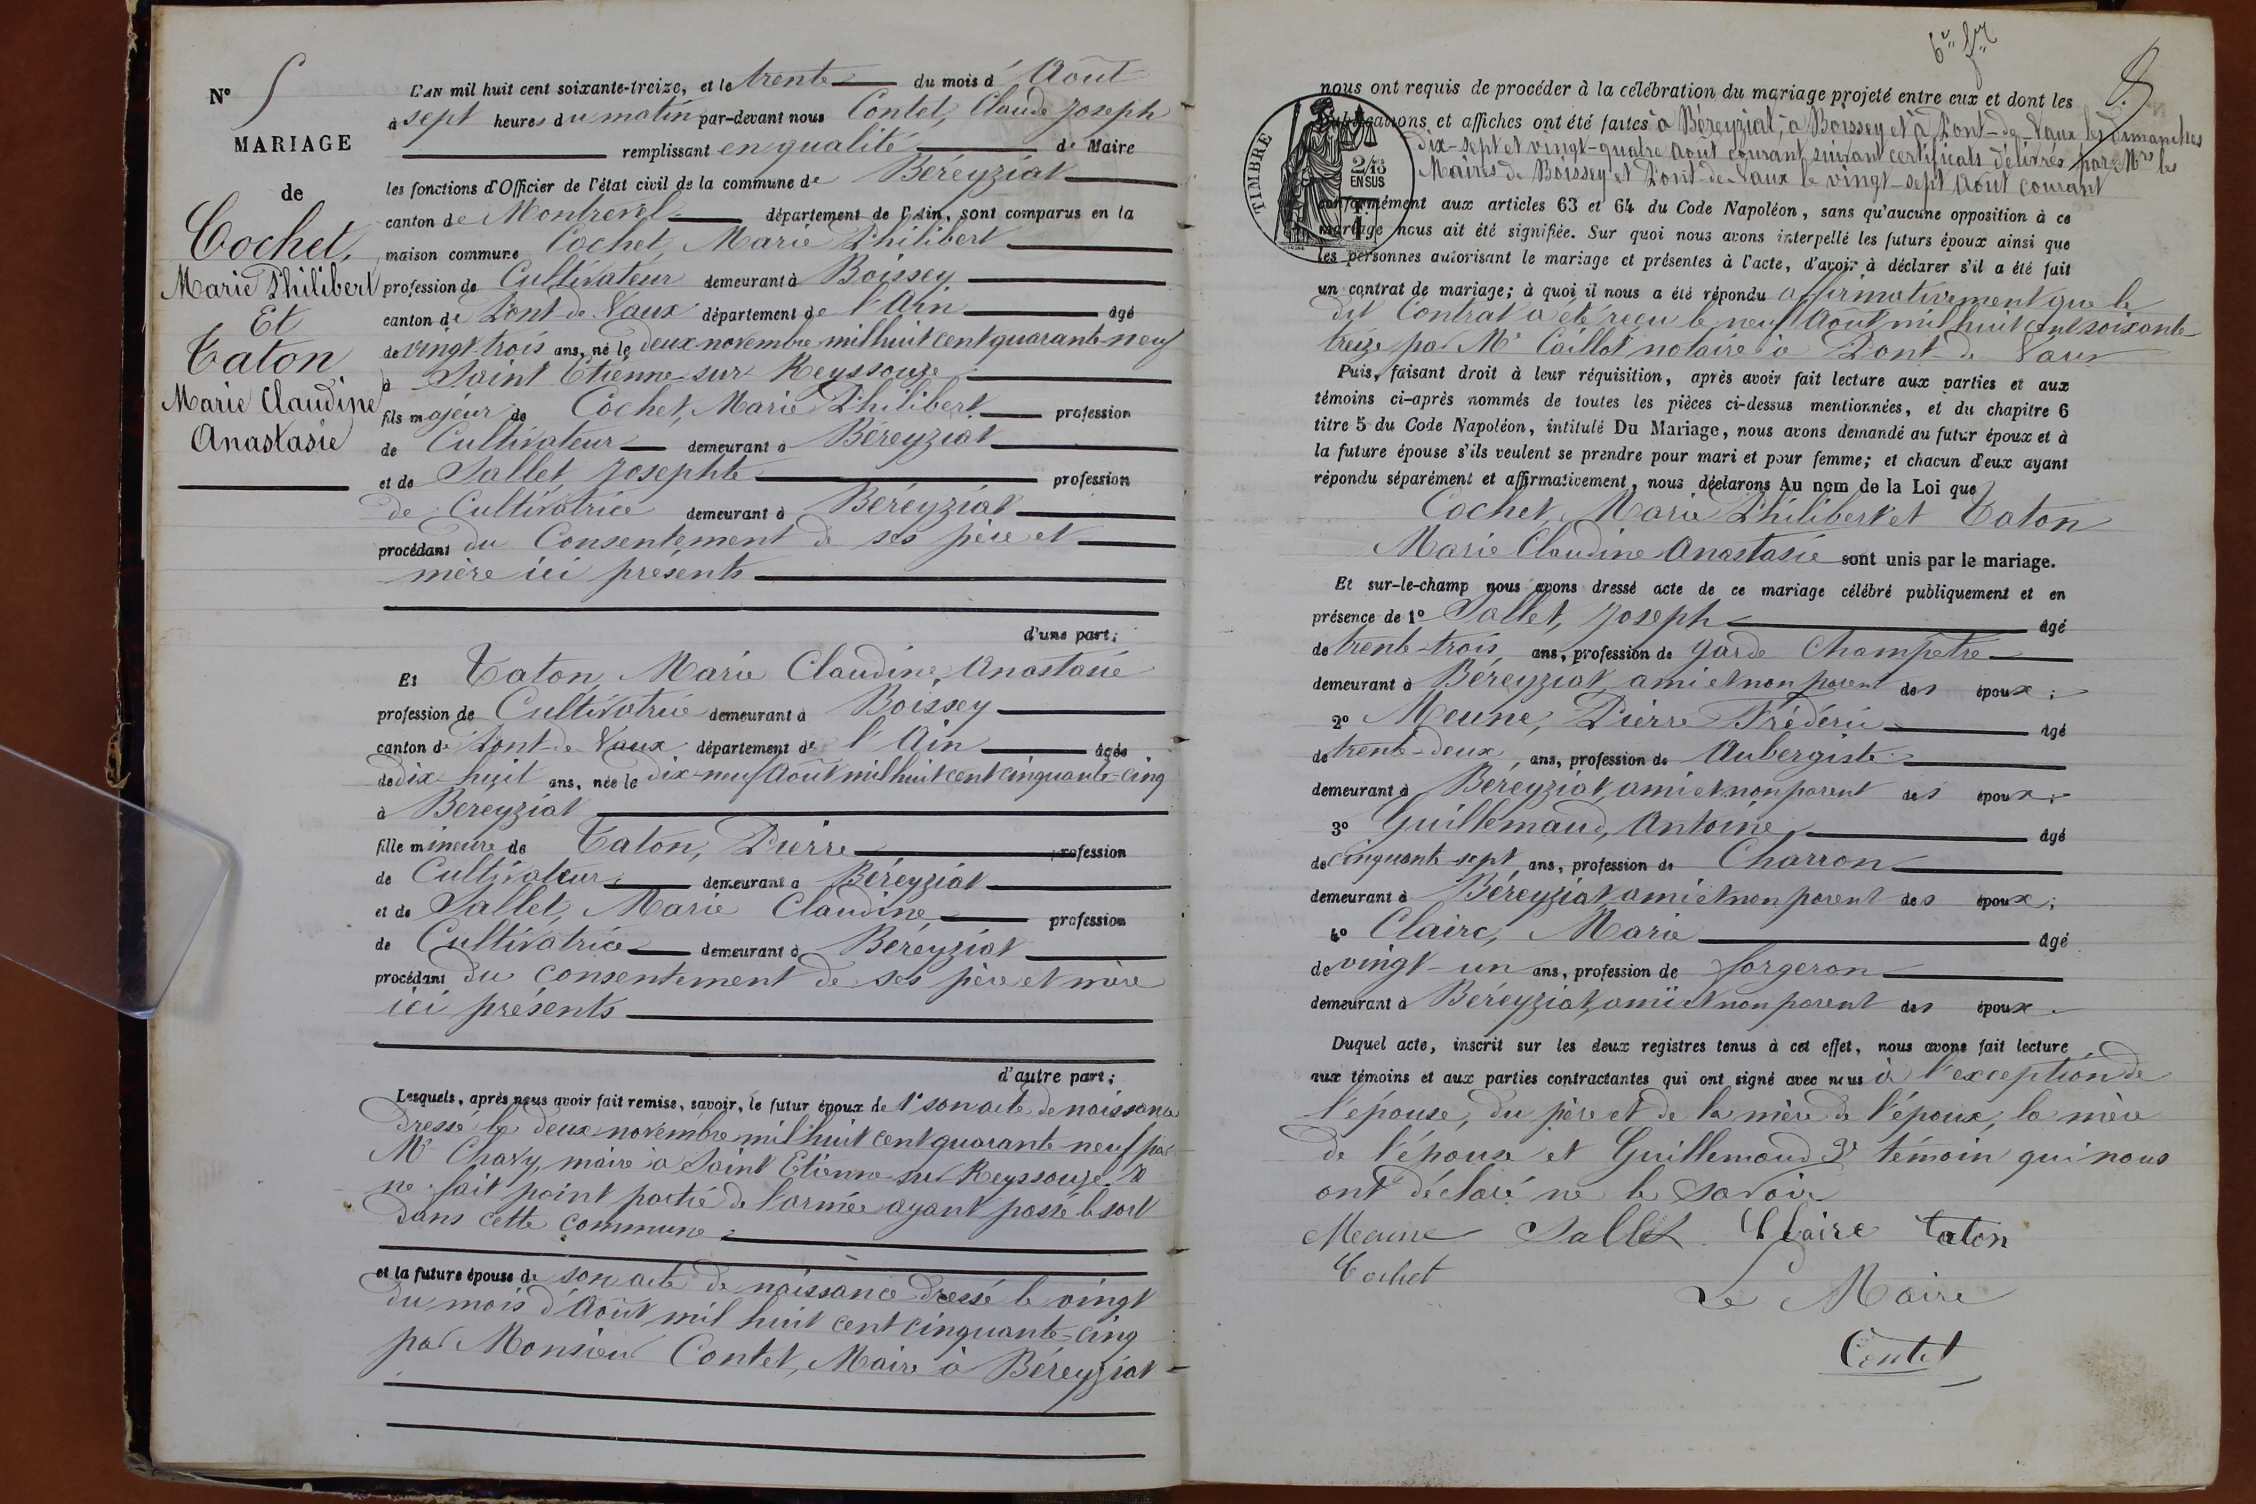 N° 5
MARIAGE
de
Cochet,
Marie Philibert
Et
Taton
Marie Claudine
Anastasie
L'AN mil huit cent soixante-treize, et le trente du mois d'Août
à sept heures du matin par-devant nous Contet, Claude Joseph
remplissant en qualité de Maire
les fonctions d'Officier de l'état civil de la commune de Béréyziat
canton de Montrevel département de l'Ain, sont comparus en la
maison commune Cochet, Marie Philibert
profession de Cultivateur demeurant à Boissey
canton de Pont-de-Vaux département de l'Ain âgé
de vingt-trois ans, né le deux novembre mil huit cent quarante-neuf
à Saint Etienne-sur-Reyssouze
fils majeur de Cochet, Marie Philibert profession
de Cultivateur demeurant à Béréyziat
et de Sallet, Josephte profession
de Cultivatrice demeurant à Béréyziat
procédant du Consentement de ses père et
mère ici présents
d'une part;
Et Taton, Marie Claudine Anastasie
profession de Cultivatrice demeurant à Boissey
canton de Pont-de-Vaux département de l'Ain âgée
de dix-huit ans, née le dix-neuf Août mil huit cent cinquante-cinq
à Bereyziat
fille mineure de Taton, Pierre profession
de Cultivateur demeurant à Béréyziat
et de Sallet, Marie Claudine, profession
de Cultivatrice demeurant à Béréyziat
procédant du consentement de ses père et mère
ici présents
d'autre part;
Lesquels, après nous avoir fait remise, savoir, le futur époux de 1° son acte de naissance
dressé le deux novembre mil huit cent quarante-neuf par
Mr Chavy, maire à Saint Etienne-sur-Reyssouze. Il
ne fait point partie de l'armée ayant passé le sort
dans cette commune
et la future épouse de son acte de naissance dressé le vingt
du mois d'Août mil huit cent cinquante-cinq
par Monsieur Contet, Maire à Béréyziat
nous ont requis de procéder à la célébration du mariage projeté entre eux et dont les
publications et affiches ont été faites à Béréyziat, à Boissey et à Pont-de-Vaux les Dimanches
dix-sept et vingt-quatre Août courant suivant certificats délivrés par Mrs les
Maires de Boissey et Pont-de-Vaux le vingt-sept Août courant
TIMBRE
2/10
EN SUS
conformément aux articles 63 et 64 du Code Napoléon, sans qu'aucune opposition à ce
mariage nous ait été signifiée. Sur quoi nous avons interpellé les futurs époux ainsi que
les personnes autorisant le mariage et présentes à l'acte, d'avoir à déclarer s'il a été fait
un contrat de mariage; à quoi il nous a été répondu affirmativement que le
dit Contrat a été reçu le neuf Août mil huit cent soixante-
treize par Mr Caillot notaire à Pont-de-Vaux
Puis, faisant droit à leur réquisition, après avoir fait lecture aux parties et aux
témoins ci-après nommés de toutes les pièces ci-dessus mentionnées, et du chapitre 6
titre 5 du Code Napoléon, intitulé Du Mariage, nous avons demandé au futur époux et à
la future épouse s'ils veulent se prendre pour mari et pour femme; et chacun d'eux ayant
répondu séparément et affirmativement, nous déclarons Au nom de la Loi que
Cochet, Marie Philibert et Taton
Marie Claudine Anastasie sont unis par le mariage.
Et sur-le-champ nous avons dressé acte de ce mariage célébré publiquement et en
présence de 1° Sallet, Joseph âgé
de trente-trois ans, profession de garde Champêtre
demeurant à Béréyziat, ami et non parent des époux;
2° Meune, Pierre Frédéric âgé
de trente-deux ans, profession de Aubergiste
demeurant à Béréyziat, ami et non parent des époux;
3° Guillemaud, Antoine âgé
de cinquante-sept ans, profession de Charron
demeurant à Béréyziat, ami et non parent des époux;
4° Claire, Marie âgé
de vingt-un ans, profession de forgeron
demeurant à Béréyziat, ami et non parent des époux.
Duquel acte, inscrit sur les deux registres tenus à cet effet, nous avons fait lecture
aux témoins et aux parties contractantes qui ont signé avec nous à l'exception de
l'épouse, du père et de la mère de l'époux, la mère
de l'épouse et Guillemaud 3e témoin qui nous
ont déclaré ne le savoir
Meune Sallet Claire Taton
Cochet
Le Maire
Contet